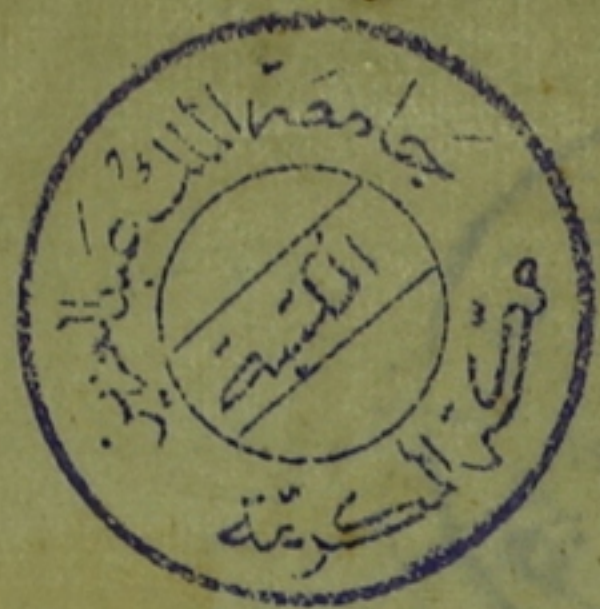 جامعة الملك عبد العزيز
المكتبة
مكة المكرمة